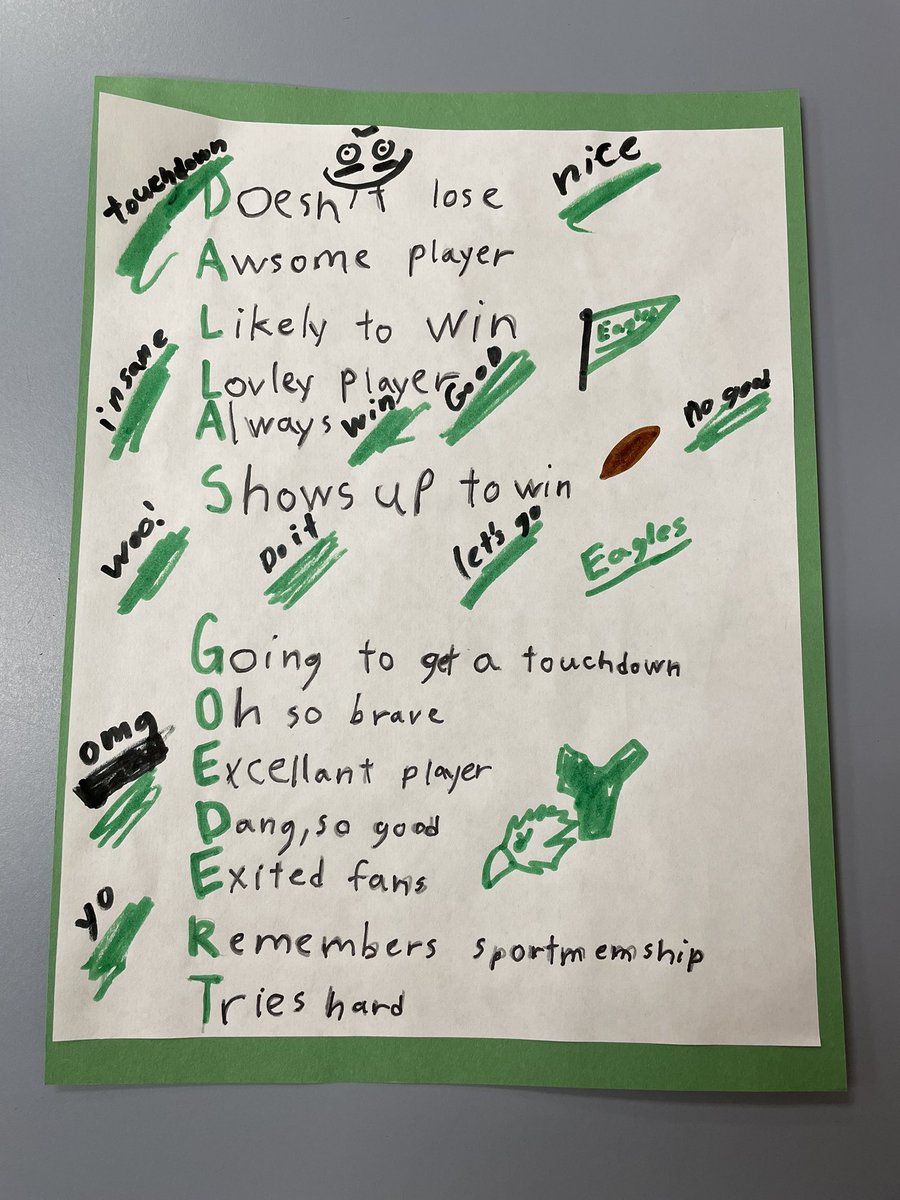 touchdown
nice
Doesn't lose
Awsome player
Likely to win
Eagles
insane
Lovley player
Good
no good
Always win
Shows up to win
woo!
Do it
let's go
Eagles
Going to get a touchdown
Oh so brave
omg
Excellant player
Dang, so good
Exited fans
yo
Remembers sportmemship
Tries hard